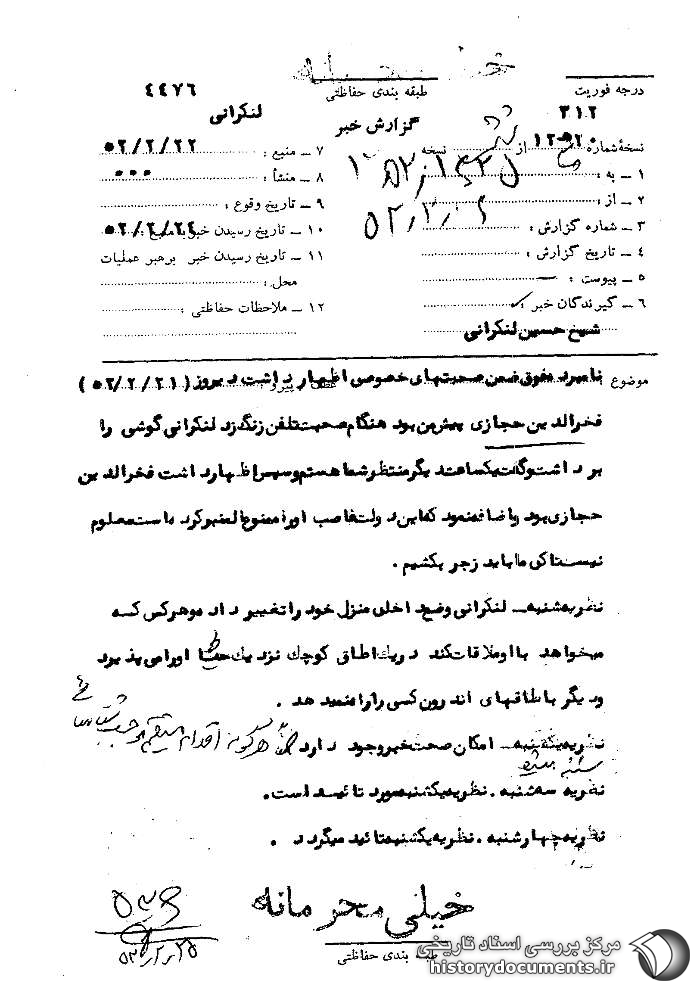 خیلی محرمانه
درجه فوریت
طبقه بندی حفاظتی
۴۴۷۶
۳۱۲
گزارش خبر
لنکرانی
نسخهٔ شماره از نسخه
۱ ـ به :
۲ ـ از :
۳ ـ شماره گزارش :
۴ ـ تاریخ گزارش :
۵ ـ پیوست :
۶ ـ گیرندگان خبر :
شیخ حسین لنکرانی
۷ ـ منبع : ۵۲/۲/۲۲
۸ ـ منشأ : ۰۰۰
۹ ـ تاریخ وقوع :
۱۰ ـ تاریخ رسیدن خبر به منبع : ۵۲/۲/۲۴
۱۱ ـ تاریخ رسیدن خبر برهبر عملیات
محل :
۱۲ ـ ملاحظات حفاظتی :
موضوع نامبرده فوق ضمن صحبتهای خصوصی اظهار داشت دیروز ( ۵۲/۲/۲۱ )
فخرالدین حجازی پیش من بود هنگام صحبت تلفن زنگ زد لنکرانی گوشی را
برداشت و گفت یکساعت دیگر منتظر شما هستم و سپس اظهار داشت فخرالدین
حجازی بود و اضافه نمود که این دولت غاصب او را ممنوع المنبر کرده است معلوم
نیست تا کی ما باید زجر بکشیم .
نظریه شنبه ـ لنکرانی وضع داخلی منزل خود را تغییر داده و هر کس که
میخواهد با او ملاقات کند در یک اطاق کوچک نزدیک حیاط او را می پذیرد
و دیگر باطاقهای اندرون کسی را راه نمیدهد .
نظریه یکشنبه ـ امکان صحت خبر وجود دارد هرگونه اقدام مستقیم موجب شناسائی
شنبه میشود
نظریه سه شنبه . نظریه یکشنبه مورد تائید است .
نظریه چهارشنبه . نظریه یکشنبه تائید میگردد .
خیلی محرمانه
طبقه بندی حفاظتی
مرکز بررسی اسناد تاریخی
historydocuments.ir